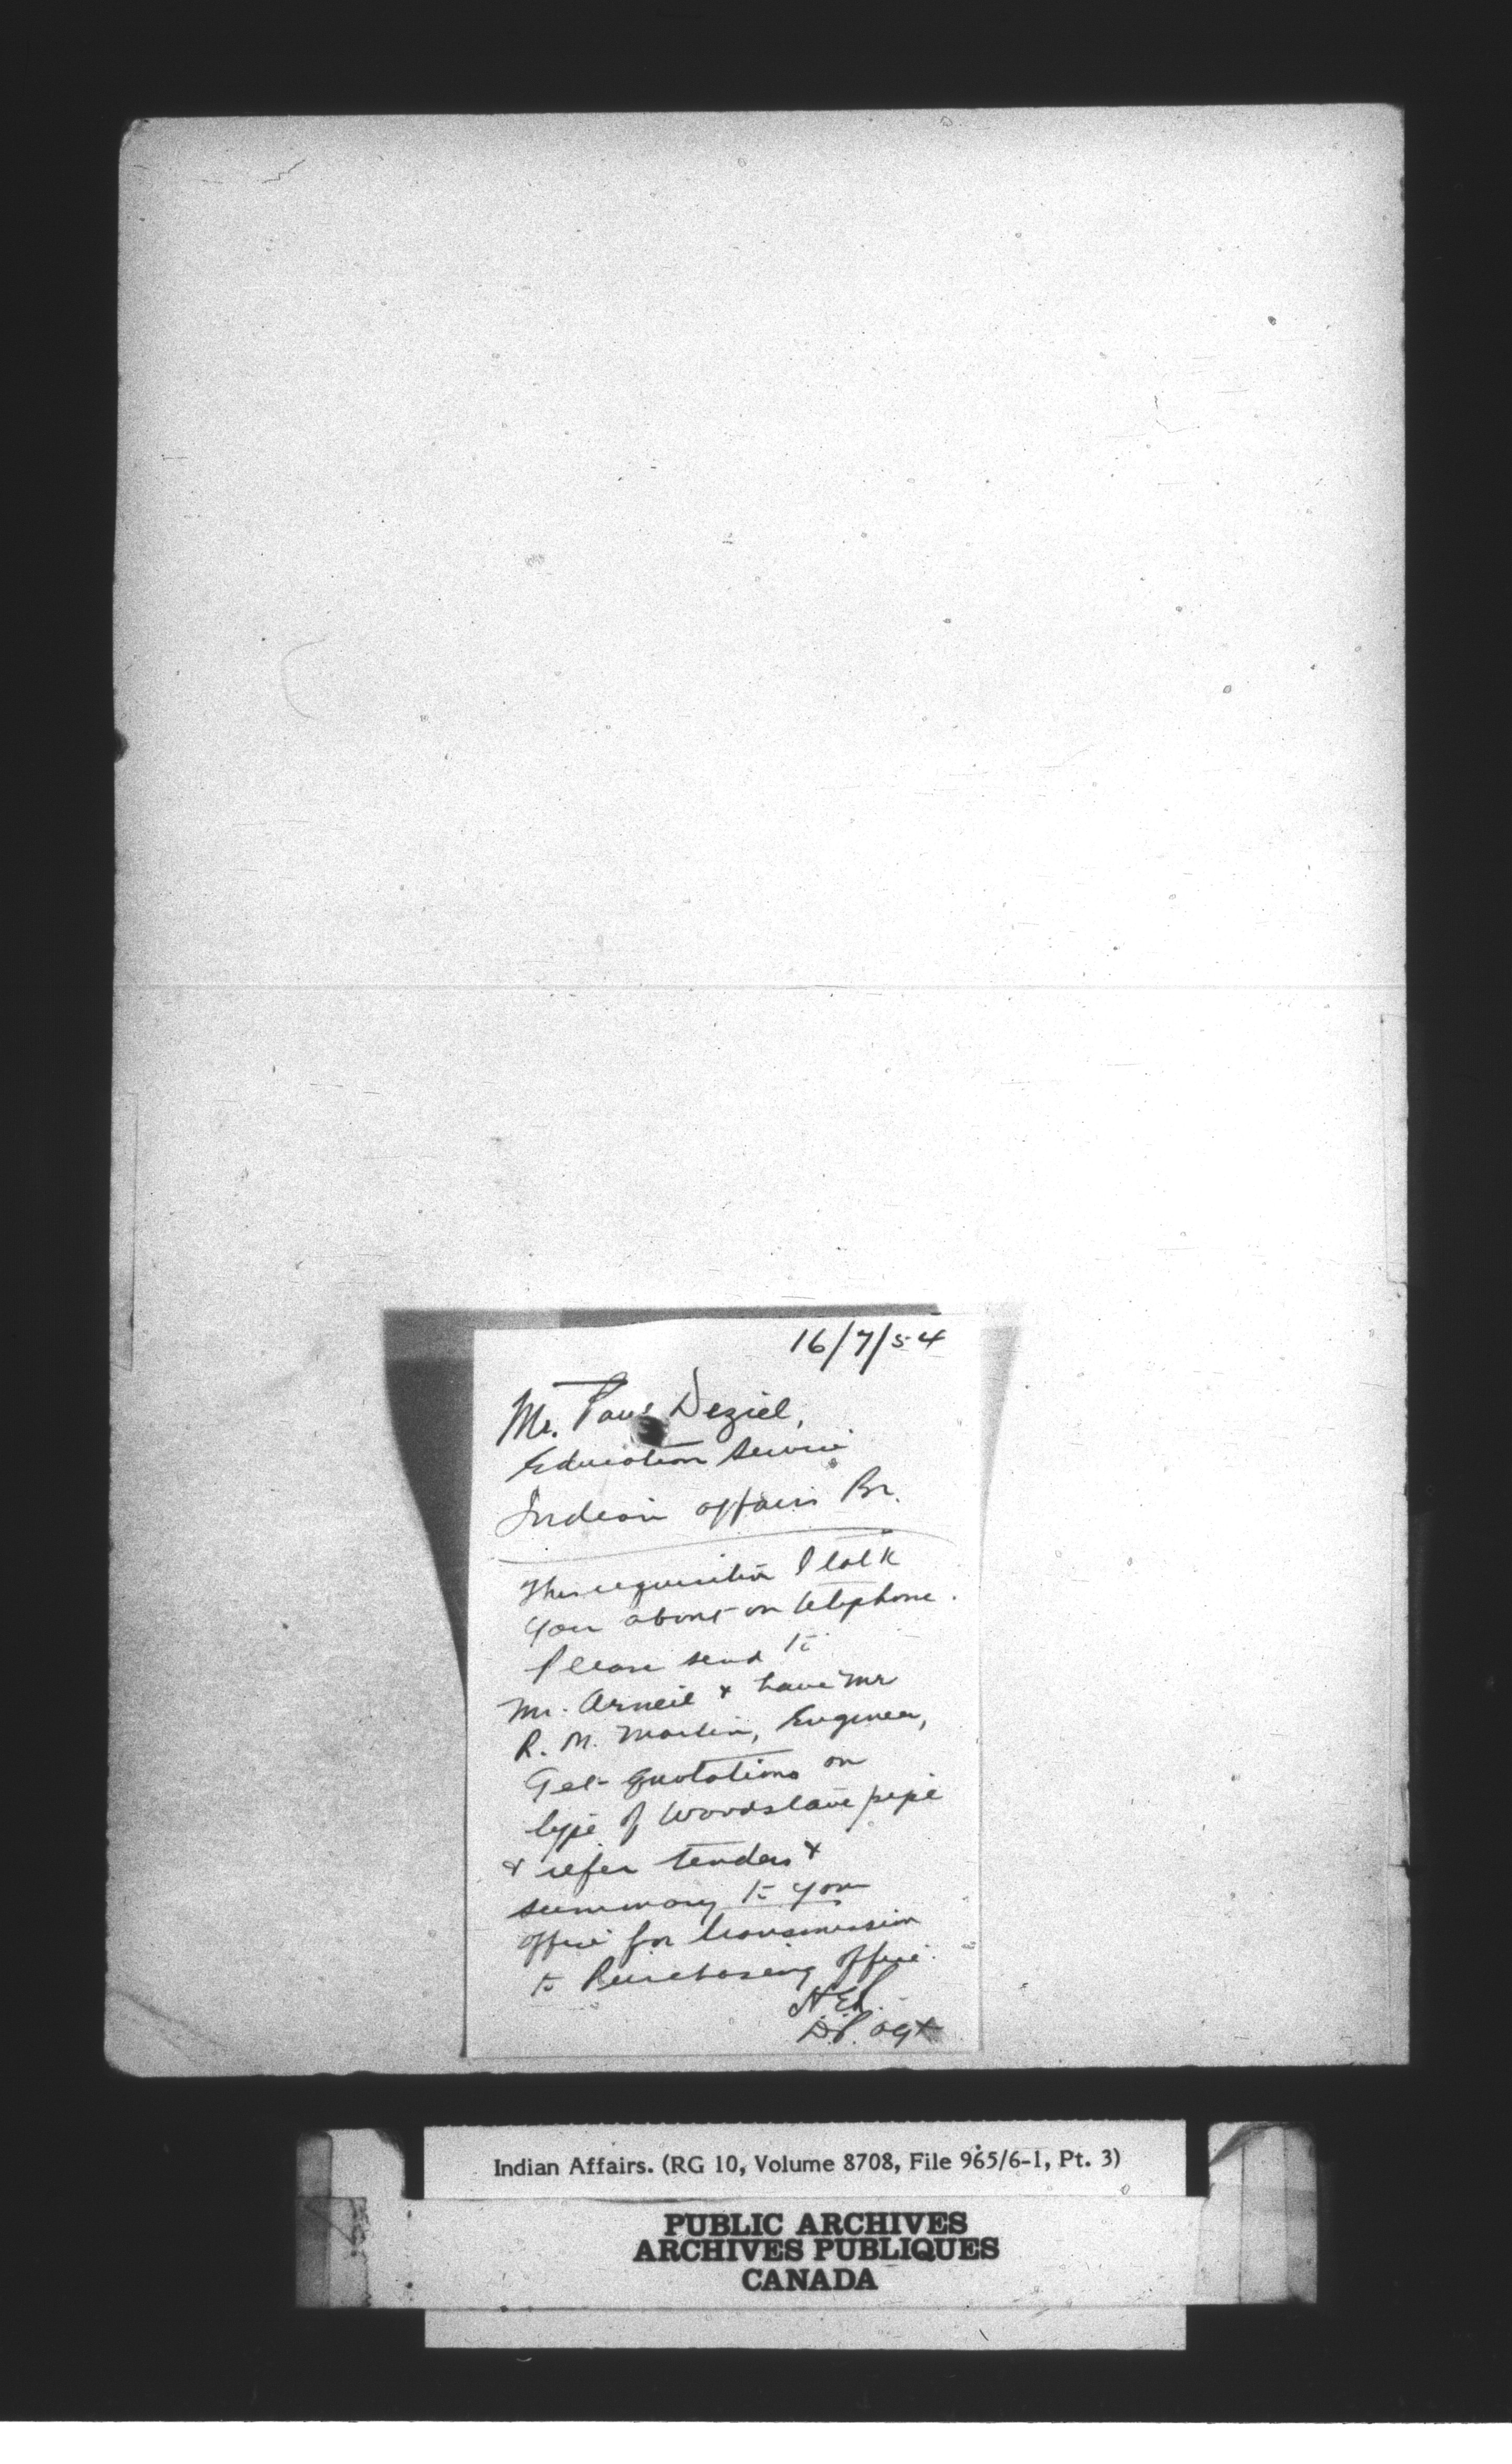 16/7/54
Mr. Paul Deziel,
Education Service
Indian Affairs Br.
This requisition I talk
you about on telephone.
Please send to
Mr. Arneil & have Mr
R. M. Martin, Engineer,
Get quotations on
type of Woodstave pipe
& refer tenders &
summary to your
office for transmission
to Purchasing office.
Agt
Indian Affairs. (RG 10, Volume 8708, File 965/6-1, Pt. 3)
PUBLIC ARCHIVES
ARCHIVES PUBLIQUES
CANADA